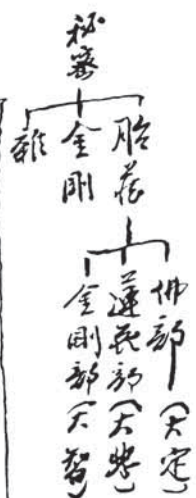 秘密
胎蔵
金剛
雜
佛部(大定)
蓮花部(大悲)
金剛部(大智)